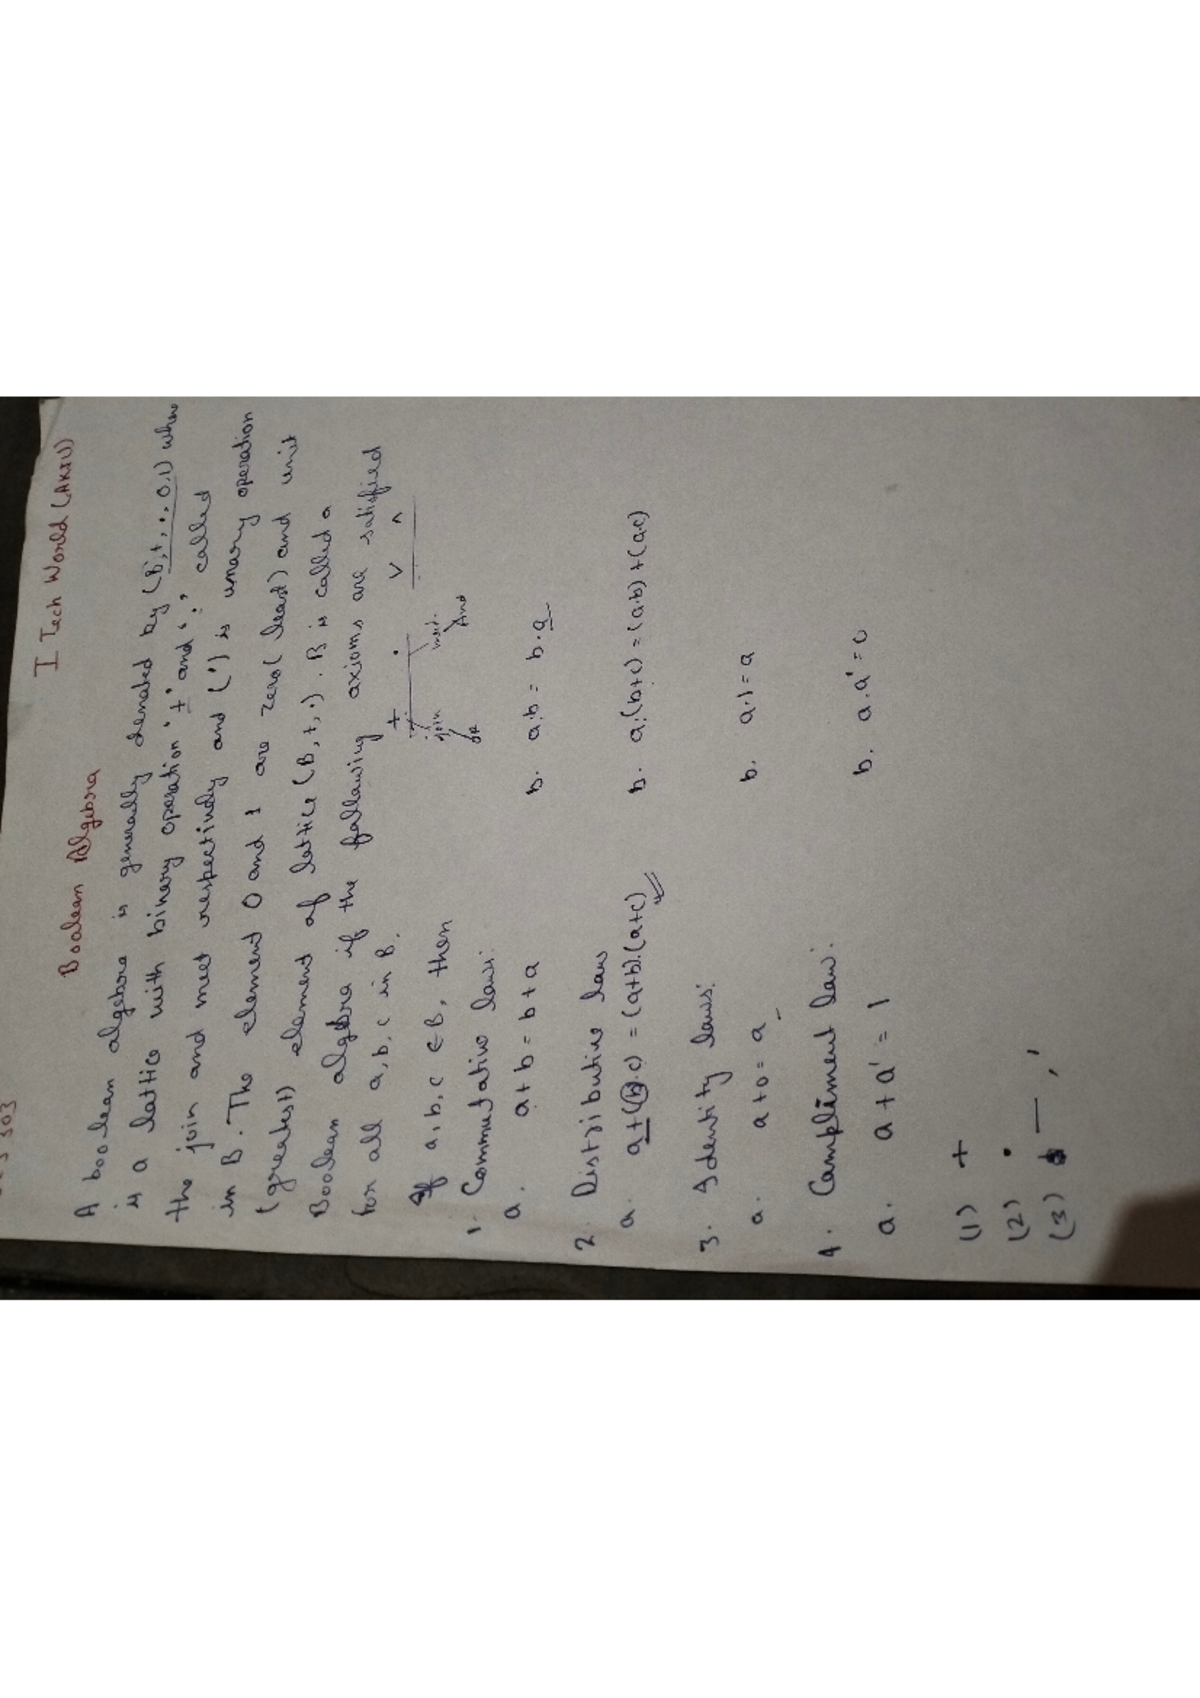 I Tech World (AKTU)
Boolean Algebra
A boolean algebra is generally denated by (B,+,·,',0,1) where
is a lattice with binary operation '+' and '·' called
the join and meet respectively and (') is unary operation
in B. The element 0 and 1 are zero (least) and unit
(greatest) element of lattice (B,+,·). B is called a
Boolean algebra if the following axioms are satisfied
for all a,b,c in B.
+ · ∨ ∧
join meet
OR And
If a,b,c ∈ B, then
1. Commutative laws:
a. a+b = b+a b. a·b = b·a
2. Distributive law
a. a+(b·c) = (a+b)·(a+c) b. a·(b+c) = (a·b)+(a·c)
3. Identity laws:
a. a+0 = a b. a·1 = a
4. Compliment law:
a. a+a' = 1 b. a·a' = 0
(1) +
(2) ·
(3) — , '